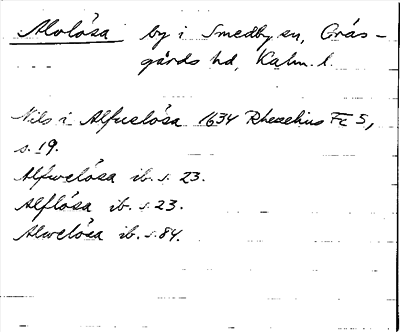 Alolösa by i Smedby sn, Grås-
gårds hd, Kalm. l.
Nils i Alfuelösa 1634 Rhezelius Fc 5,
s. 19.
Alfwelösa ib. s. 23.
Alflösa ib. s. 23.
Alwelösa ib. s. 84.